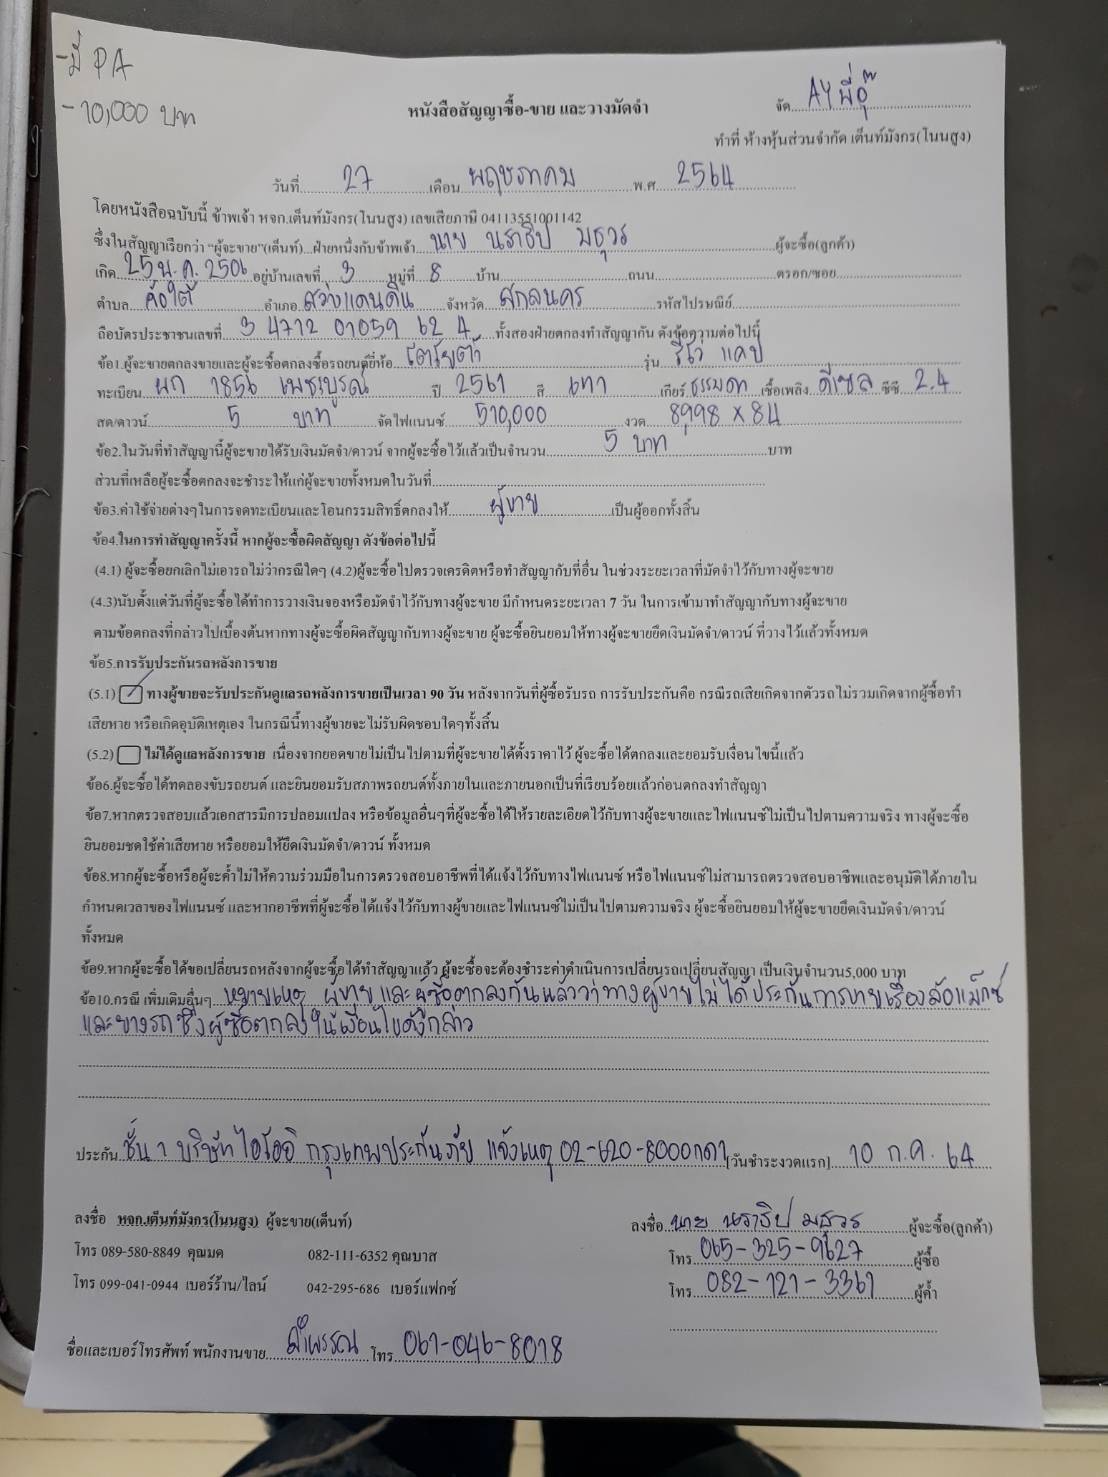 -มี PA
-10,000 บาท
หนังสือสัญญาซื้อ-ขาย และวางมัดจำ
จัด AY พี่อุ๊
ทำที่ ห้างหุ้นส่วนจำกัด เต็นท์มังกร(โนนสูง)
วันที่ 27 เดือน พฤษภาคม พ.ศ 2564
โดยหนังสือฉบับนี้ ข้าพเจ้า หจก.เต็นท์มังกร(โนนสูง) เลขเสียภาษี 04113551001142
ซึ่งในสัญญาเรียกว่า "ผู้จะขาย"(เต็นท์)...ฝ่ายหนึ่งกับข้าพเจ้า นาย นราธิป มธุวร ผู้จะซื้อ(ลูกค้า)
เกิด 25 ม.ค. 2506 อยู่บ้านเลขที่ 3 หมู่ที่ 8 บ้าน ถนน ตรอก/ซอย
ตำบล ค้อใต้ อำเภอ สว่างแดนดิน จังหวัด สกลนคร รหัสไปรษณีย์
ถือบัตรประชาชนเลขที่ 3 4712 01059 62 4 ทั้งสองฝ่ายตกลงทำสัญญากัน ดังข้อความต่อไปนี้
ข้อ1.ผู้จะขายตกลงขายและผู้จะซื้อตกลงซื้อรถยนต์ยี่ห้อ โตโยต้า รุ่น รีโว่ แคป
ทะเบียน ผก 1856 เพชรบูรณ์ ปี 2561 สี เทา เกียร์ ธรรมดา เชื้อเพลิง ดีเซล ซีซี 2.4
สด/ดาวน์ 5 บาท จัดไฟแนนซ์ 510,000 งวด 8,998 x 84
ข้อ2.ในวันที่ทำสัญญานี้ผู้จะขายได้รับเงินมัดจำ/ดาวน์ จากผู้จะซื้อไว้แล้วเป็นจำนวน 5 บาท บาท
ส่วนที่เหลือผู้จะซื้อตกลงจะชำระให้แก่ผู้จะขายทั้งหมดในวันที่
ข้อ3.ค่าใช้จ่ายต่างๆในการจดทะเบียนและโอนกรรมสิทธิ์ตกลงให้ ผู้ขาย เป็นผู้ออกทั้งสิ้น
ข้อ4.ในการทำสัญญาครั้งนี้ หากผู้จะซื้อผิดสัญญา ดังข้อต่อไปนี้
(4.1) ผู้จะซื้อยกเลิกไม่เอารถไม่ว่ากรณีใดๆ (4.2)ผู้จะซื้อไปตรวจเครดิตหรือทำสัญญากับที่อื่น ในช่วงระยะเวลาที่มัดจำไว้กับทางผู้จะขาย
(4.3)นับตั้งแต่วันที่ผู้จะซื้อได้ทำการวางเงินจองหรือมัดจำไว้กับทางผู้จะขาย มีกำหนดระยะเวลา 7 วัน ในการเข้ามาทำสัญญากับทางผู้จะขาย
ตามข้อตกลงที่กล่าวไปเบื้องต้นหากทางผู้จะซื้อผิดสัญญากับทางผู้จะขาย ผู้จะซื้อยินยอมให้ทางผู้จะขายยึดเงินมัดจำ/ดาวน์ ที่วางไว้แล้วทั้งหมด
ข้อ5.การรับประกันรถหลังการขาย
(5.1) ทางผู้ขายจะรับประกันดูแลรถหลังการขายเป็นเวลา 90 วัน หลังจากวันที่ผู้ซื้อรับรถ การรับประกันคือ กรณีรถเสียเกิดจากตัวรถไม่รวมเกิดจากผู้ซื้อทำ
เสียหาย หรือเกิดอุบัติเหตุเอง ในกรณีนี้ทางผู้ขายจะไม่รับผิดชอบใดๆทั้งสิ้น
(5.2) ไม่ได้ดูแลหลังการขาย เนื่องจากยอดขายไม่เป็นไปตามที่ผู้จะขายได้ตั้งราคาไว้ ผู้จะซื้อได้ตกลงและยอมรับเงื่อนไขนี้แล้ว
ข้อ6.ผู้จะซื้อได้ทดลองขับรถยนต์ และยินยอมรับสภาพรถยนต์ทั้งภายในและภายนอกเป็นที่เรียบร้อยแล้วก่อนตกลงทำสัญญา
ข้อ7.หากตรวจสอบแล้วเอกสารมีการปลอมแปลง หรือข้อมูลอื่นๆที่ผู้จะซื้อได้ให้รายละเอียดไว้กับทางผู้จะขายและไฟแนนซ์ไม่เป็นไปตามความจริง ทางผู้จะซื้อ
ยินยอมชดใช้ค่าเสียหาย หรือยอมให้ยึดเงินมัดจำ/ดาวน์ ทั้งหมด
ข้อ8.หากผู้จะซื้อหรือผู้จะค้ำไม่ให้ความร่วมมือในการตรวจสอบอาชีพที่ได้แจ้งไว้กับทางไฟแนนซ์ หรือไฟแนนซ์ไม่สามารถตรวจสอบอาชีพและอนุมัติได้ภายใน
กำหนดเวลาของไฟแนนซ์ และหากอาชีพที่ผู้จะซื้อได้แจ้งไว้กับทางผู้ขายและไฟแนนซ์ไม่เป็นไปตามความจริง ผู้จะซื้อยินยอมให้ผู้จะขายยึดเงินมัดจำ/ดาวน์
ทั้งหมด
ข้อ9.หากผู้จะซื้อได้ขอเปลี่ยนรถหลังจากผู้จะซื้อได้ทำสัญญาแล้ว ผู้จะซื้อจะต้องชำระค่าดำเนินการเปลี่ยนรถเปลี่ยนสัญญา เป็นเงินจำนวน5,000 บาท
ข้อ10.กรณี เพิ่มเติมอื่นๆ หมายเหตุ ผู้ขาย และ ผู้ซื้อตกลงกันแล้วว่าทางผู้ขายไม่ได้ประกันการขายเรื่องล้อแม็กซ์
และยางรถ ซึ่งผู้ซื้อตกลงในเงื่อนไขดังกล่าว
ประกัน ชั้น 1 บริษัท ไอโออิ กรุงเทพประกันภัย แจ้งเหตุ 02-620-8000กด1 [วันชำระงวดแรก] 10 ก.ค. 64
ลงชื่อ หจก.เต็นท์มังกร(โนนสูง) ผู้จะขาย(เต็นท์) ลงชื่อ นาย นราธิป มธุวร ผู้จะซื้อ(ลูกค้า)
โทร 089-580-8849 คุณมด 082-111-6352 คุณบาส โทร 065-325-9627 ผู้ซื้อ
โทร 099-041-0944 เบอร์ร้าน/ไลน์ 042-295-686 เบอร์แฟกซ์ โทร 082-121-3361 ผู้ค้ำ
ชื่อและเบอร์โทรศัพท์ พนักงานขาย ลำพรรณ โทร 061-046-8018